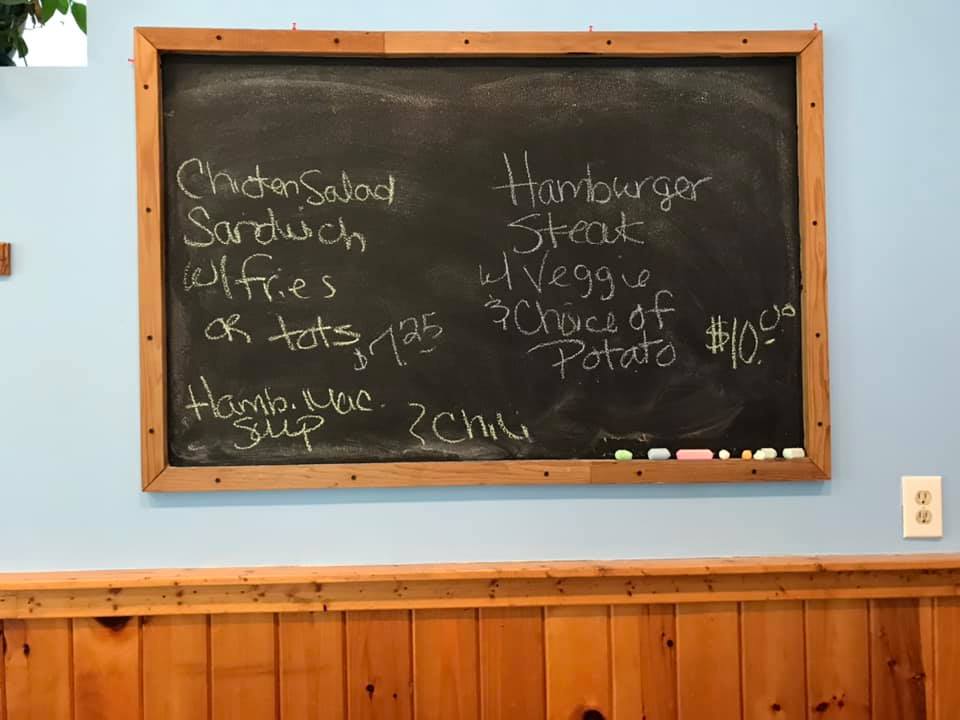 Chicken Salad
Sandwich
w/ fries
or tots $7.25
Hamb. Mac.
Soup & Chili
Hamburger
Steak
w/ Veggie
& Choice of
Potato $10.00